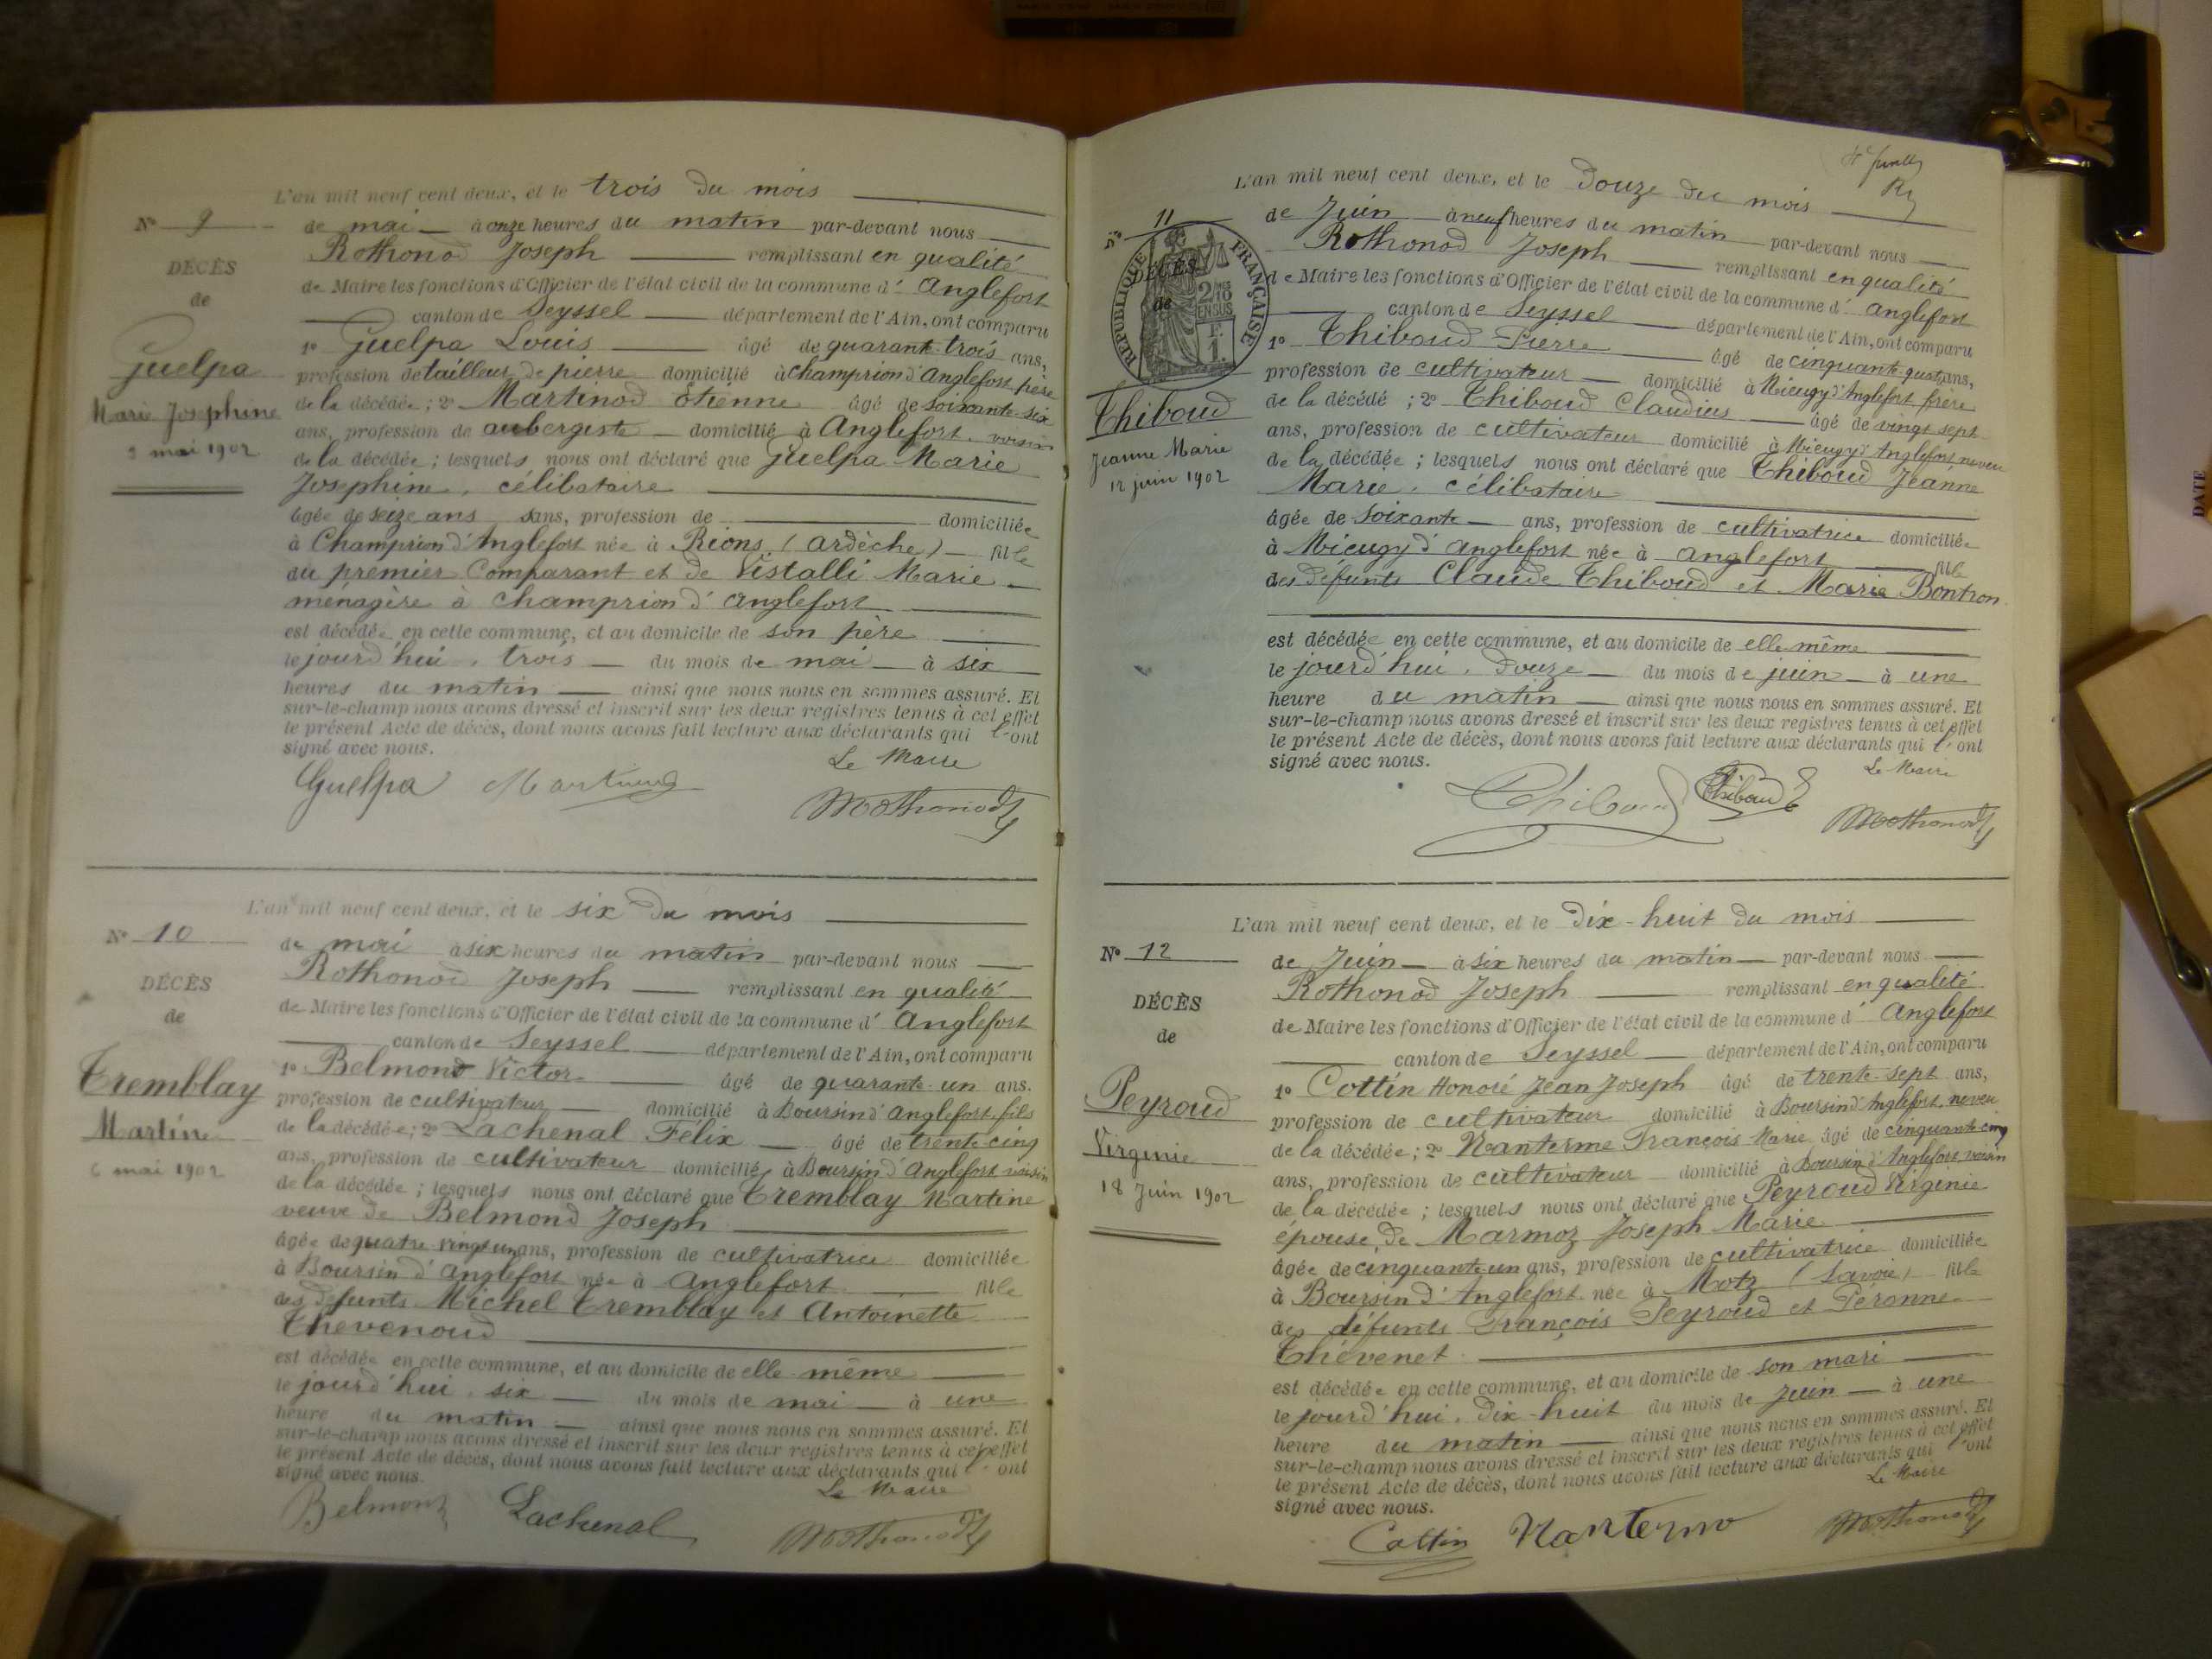 L'an mil neuf cent deux, et le trois du mois
N° 9
de mai à onze heures du matin par-devant nous
Rothonod Joseph remplissant en qualité
DÉCÈS
de Maire les fonctions d'Officier de l'état civil de la commune d' Anglefort
de
canton de Seyssel département de l'Ain, ont comparu
1° Guelpa Louis âgé de quarante trois ans,
Guelpa
profession de tailleur de pierre domicilié à Champrion d'Anglefort père
Marie Josephine
de la décédée ; 2° Martinod Etienne âgé de soixante-six
ans, profession de aubergiste domicilié à Anglefort, voisin
mai 1902
de la décédée ; lesquels nous ont déclaré que Guelpa Marie
Josephine, célibataire
âgée de seize ans sans, profession de domiciliée
à Champrion d'Anglefort née à Rions (Ardèche) fille
du premier Comparant et de Vistalli Marie
ménagère à Champrion d'Anglefort
est décédée en cette commune, et au domicile de son père
le jourd'hui, trois du mois de mai à six
heures du matin ainsi que nous nous en sommes assuré. Et
sur-le-champ nous avons dressé et inscrit sur les deux registres tenus à cet effet
le présent Acte de décès, dont nous avons fait lecture aux déclarants qui l'ont
signé avec nous.
Le Maire
Guelpa Martinod Rothonod
L'an mil neuf cent deux, et le six du mois
N° 10
de mai à six heures du matin par-devant nous
Rothonod Joseph remplissant en qualité
DÉCÈS
de Maire les fonctions d'Officier de l'état civil de la commune d' Anglefort
de
canton de Seyssel département de l'Ain, ont comparu
1° Belmond Victor âgé de quarante-un ans.
Tremblay
profession de cultivateur domicilié à Boursin d'Anglefort fils
Martine
de la décédée ; 2° Lachenal Félix âgé de trente-cinq
6 mai 1902
ans, profession de cultivateur domicilié à Boursin d'Anglefort voisin
de la décédée ; lesquels nous ont déclaré que Tremblay Martine
veuve de Belmond Joseph
âgée de quatre-vingt un ans, profession de cultivatrice domiciliée
à Boursin d'Anglefort née à Anglefort fille
des défunts Michel Tremblay et Antoinette
Thevenoud
est décédée en cette commune, et au domicile de elle-même
le jourd'hui, six du mois de mai à une
heure du matin ainsi que nous nous en sommes assuré. Et
sur-le-champ nous avons dressé et inscrit sur les deux registres tenus à cet effet
le présent Acte de décès, dont nous avons fait lecture aux déclarants qui l'ont
signé avec nous.
Le Maire
Belmond Lachenal Rothonod
L'an mil neuf cent deux, et le douze du mois
N° 11
de Juin à neuf heures du matin par-devant nous
Rothonod Joseph remplissant en qualité
RÉPUBLIQUE FRANÇAISE
2/10 EN SUS
F. 1.
DÉCÈS
de Maire les fonctions d'Officier de l'état civil de la commune d' Anglefort
de
canton de Seyssel département de l'Ain, ont comparu
1° Thiboud Pierre âgé de cinquante-quatre ans,
profession de cultivateur domicilié à Mieugy d'Anglefort frère
Thiboud
de la décédé ; 2° Thiboud Claudius âgé de vingt sept
Jeanne Marie
ans, profession de cultivateur domicilié à Mieugy d'Anglefort neveu
12 juin 1902
de la décédée ; lesquels nous ont déclaré que Thiboud Jeanne
Marie, célibataire
âgée de soixante ans, profession de cultivatrice domiciliée
à Mieugy d'Anglefort née à Anglefort fille
des défunts Claude Thiboud et Marie Bontron
est décédée en cette commune, et au domicile de elle même
le jourd'hui, douze du mois de juin à une
heure du matin ainsi que nous nous en sommes assuré. Et
sur-le-champ nous avons dressé et inscrit sur les deux registres tenus à cet effet
le présent Acte de décès, dont nous avons fait lecture aux déclarants qui l'ont
signé avec nous.
Le Maire
Thiboud Thiboud Rothonod
L'an mil neuf cent deux, et le dix-huit du mois
N° 12
de Juin à six heures du matin par-devant nous
Rothonod Joseph remplissant en qualité
DÉCÈS
de Maire les fonctions d'Officier de l'état civil de la commune d' Anglefort
de
canton de Seyssel département de l'Ain, ont comparu
1° Cottin Honoré Jean Joseph âgé de trente-sept ans,
Peyroud
profession de cultivateur domicilié à Boursin d'Anglefort, neveu
Virginie
de la décédée ; 2° Nanterme François Marie âgé de cinquante-cinq
18 Juin 1902
ans, profession de cultivateur domicilié à Boursin d'Anglefort voisin
de la décédée ; lesquels nous ont déclaré que Peyroud Virginie
épouse de Marmoz Joseph Marie
âgée de cinquante un ans, profession de cultivatrice domiciliée
à Boursin d'Anglefort née à Motz (Savoie) fille
des défunts François Peyroud et Péronne
Thévenet
est décédée en cette commune, et au domicile de son mari
le jourd'hui, dix-huit du mois de juin à une
heure du matin ainsi que nous nous en sommes assuré. Et
sur-le-champ nous avons dressé et inscrit sur les deux registres tenus à cet effet
le présent Acte de décès, dont nous avons fait lecture aux déclarants qui l'ont
signé avec nous.
Le Maire
Cottin Nanterme Rothonod
DATE